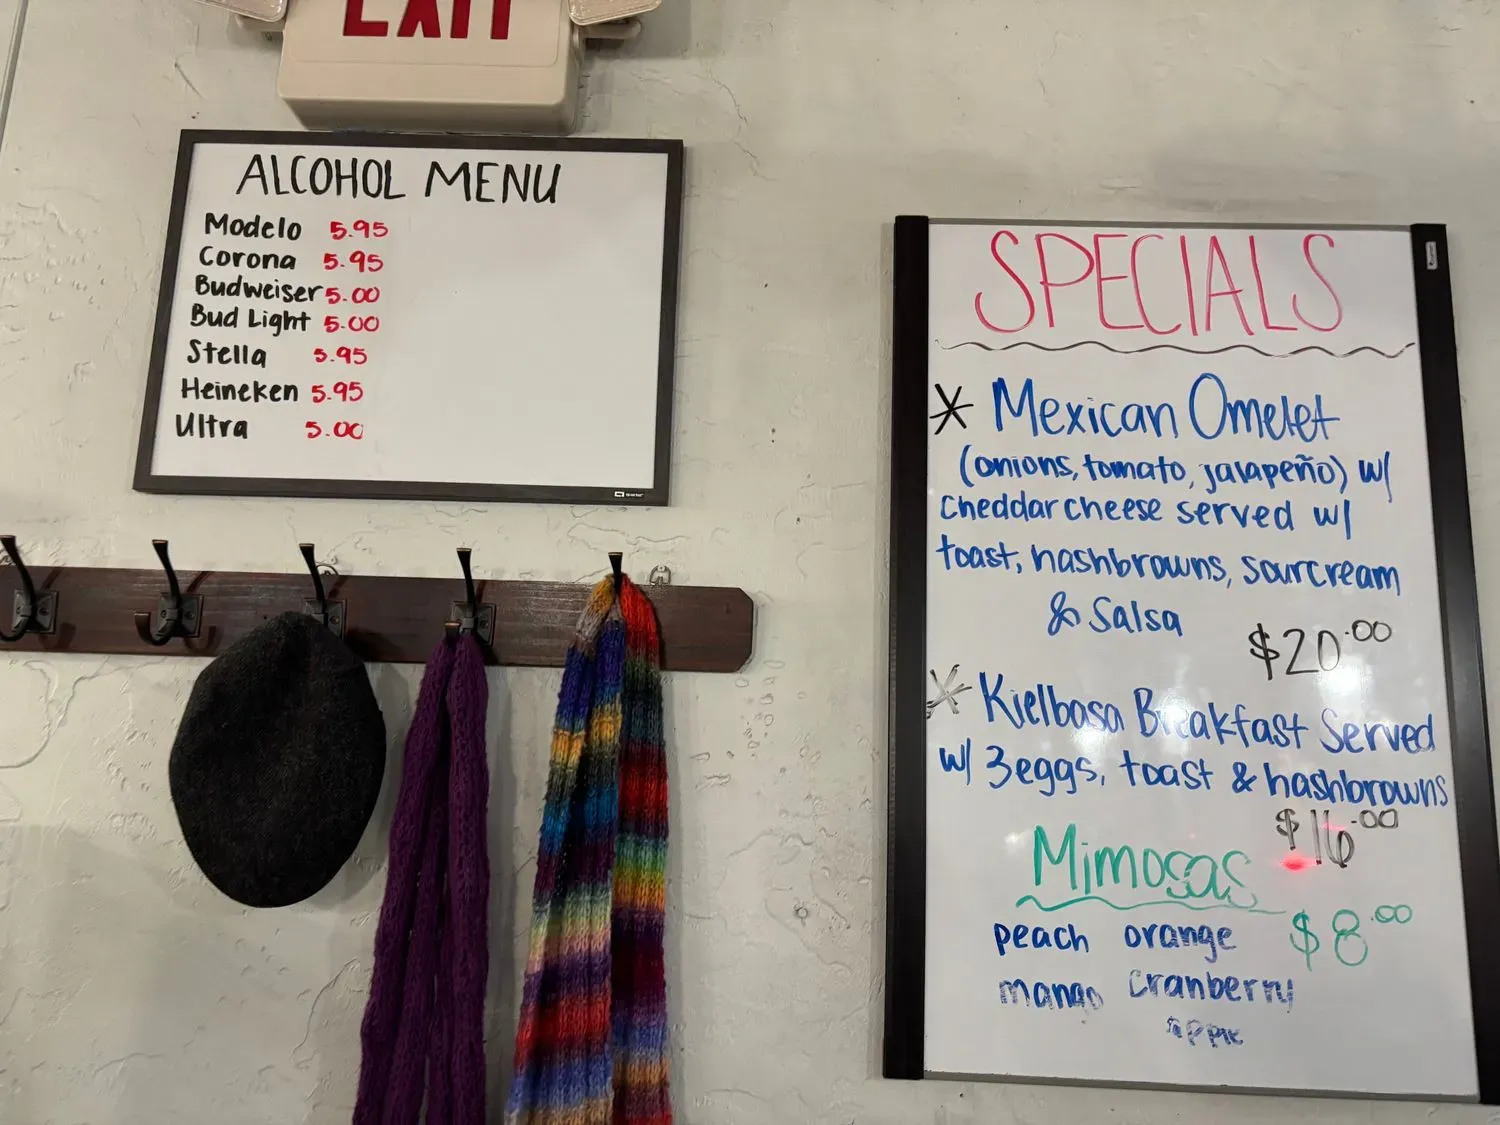 EXIT
ALCOHOL MENU
Modelo 5.95
Corona 5.95
Budweiser 5.00
Bud Light 5.00
Stella 5.95
Heineken 5.95
Ultra 5.00
SPECIALS
* Mexican Omelet
(onions, tomato, jalapeño) w/
cheddar cheese served w/
toast, hashbrowns, sourcream
& Salsa $20.00
* Kielbasa Breakfast Served
w/ 3 eggs, toast & hashbrowns
$16.00
Mimosas
peach orange $8.00
mango cranberry
apple